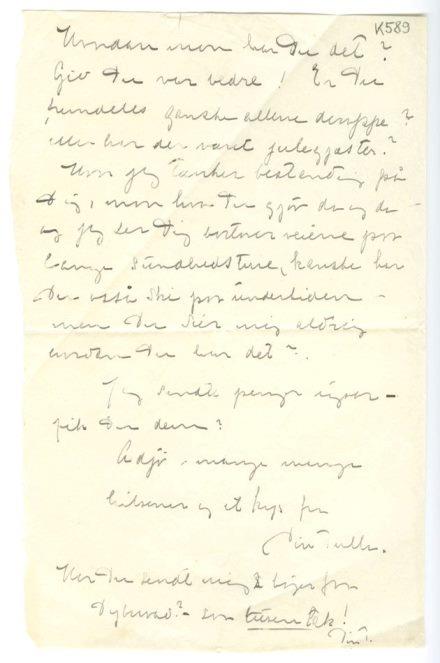 K589
Hvordan mon har Du det?
Giv Du var bedre! Er Du
fremdeles ganske allene deroppe?
eller har der været julegjæster?
Men jeg tænker bestændig på
Dig, mon hva Du gjør da og da
og jeg ser Dig bortner veiene paa
lange sundhedsture, kanske har
Du også Ski paa underliden –
men Du sier mig aldrig
hvordan Du har det?
Jeg sendte penge igaar –
fik Du dem?
Adjø, mange mange
hilsener og et kys fra
Din Tulla.
Har Du sendt mig 2 bøger fra
Dybwad? – saa tusen tak!
Din T.